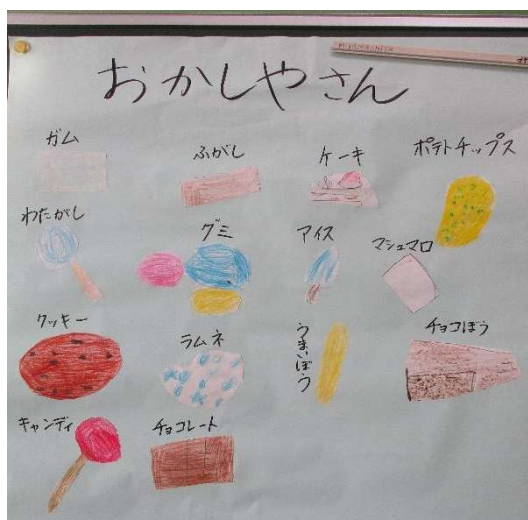 おかしやさん
ガム
ふがし
ケーキ
ポテトチップス
わたがし
グミ
アイス
マシュマロ
クッキー
ラムネ
うまいぼう
チョコぼう
キャンディ
チョコレート